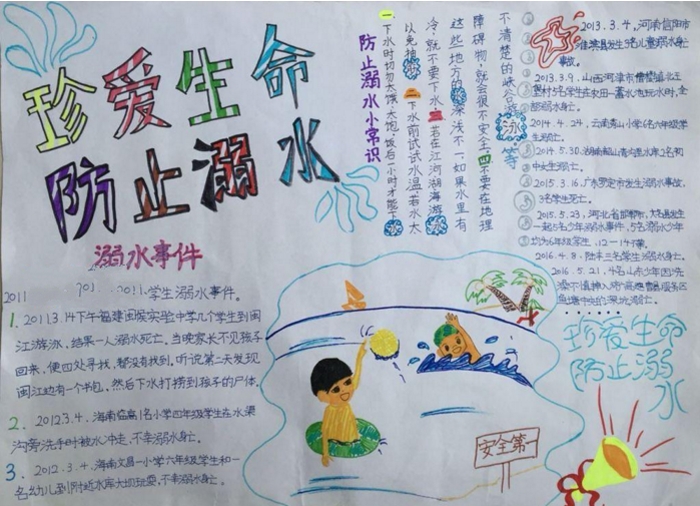 珍爱生命
防止溺水
溺水事件
2011
学生溺水事件。
1. 2011 3.14下午福建闽侯实验中学几个学生到闽
江游泳，结果一人溺水死亡。当晚家长不见孩子
回来，便四处寻找，都没有找到。听说第二天发现
闽江边有一个书包，然后下水打捞到孩子的尸体。
2. 2012.3.4.海南临高1名小学四年级学生在水渠
沟旁洗手时被水冲走，不幸溺水身亡。
3. 2012.3.4.海南文昌一小学六年级学生和一
名幼儿到附近水库大坝玩耍，不幸溺水身亡。
防止溺水小常识
一下水时切勿太饿、太饱。饭后一小时才能下
以免抽
二下水前试试水温，若水太
冷，就不要下水，三若在江河湖海游
这些地方的深浅不一，如果水里有
障碍物，就会很不安全，四不要在地理
不清楚的峡谷游泳等
2013.3.4，河南信阳市
淮滨县发生3名儿童溺水身亡
事故。
2013.3.9.山西河津市僧楼镇北王
堡村5名学生在农田一蓄水池玩水时，全
部溺水身亡。
2014.4.24，云南青山小学6名六年级学
生溺亡。
2014.5.30.湖南韶山青沟里水库2名初
中女生溺亡。
2015.3.16.广东罗定市发生溺水事故，
3名学生死亡。
2015.5.23，河北省邯郸市，大名县发生
一起5名少年溺水事件，5名溺水少年
均为6年级学生，12—14岁。
2016.4.8.陆丰三名学生溺水身亡。
2016.5.21，4名山东少年因洗
澡不慎掉入
鱼塘中央的深坑溺亡。
珍爱生命
防止溺
水
安全第一